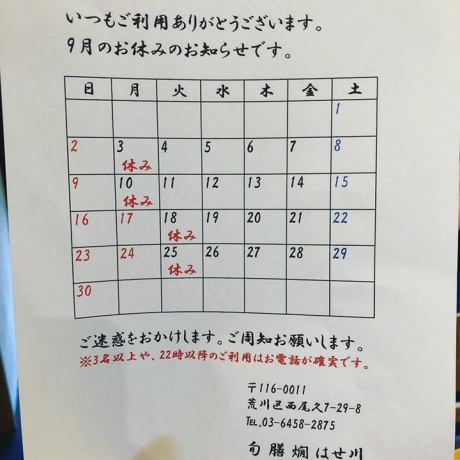 いつもご利用ありがとうございます。
9月のお休みのお知らせです。
日 月 火 水 木 金 土
1
2 3 4 5 6 7 8
休み
9 10 11 12 13 14 15
休み
16 17 18 19 20 21 22
休み
23 24 25 26 27 28 29
休み
30
ご迷惑をおかけします。ご周知お願いします。
※3名以上や、22時以降のご利用はお電話が確実です。
〒116-0011
荒川区西尾久7-29-8
Tel,03-6458-2875
旬膳燗 はせ川